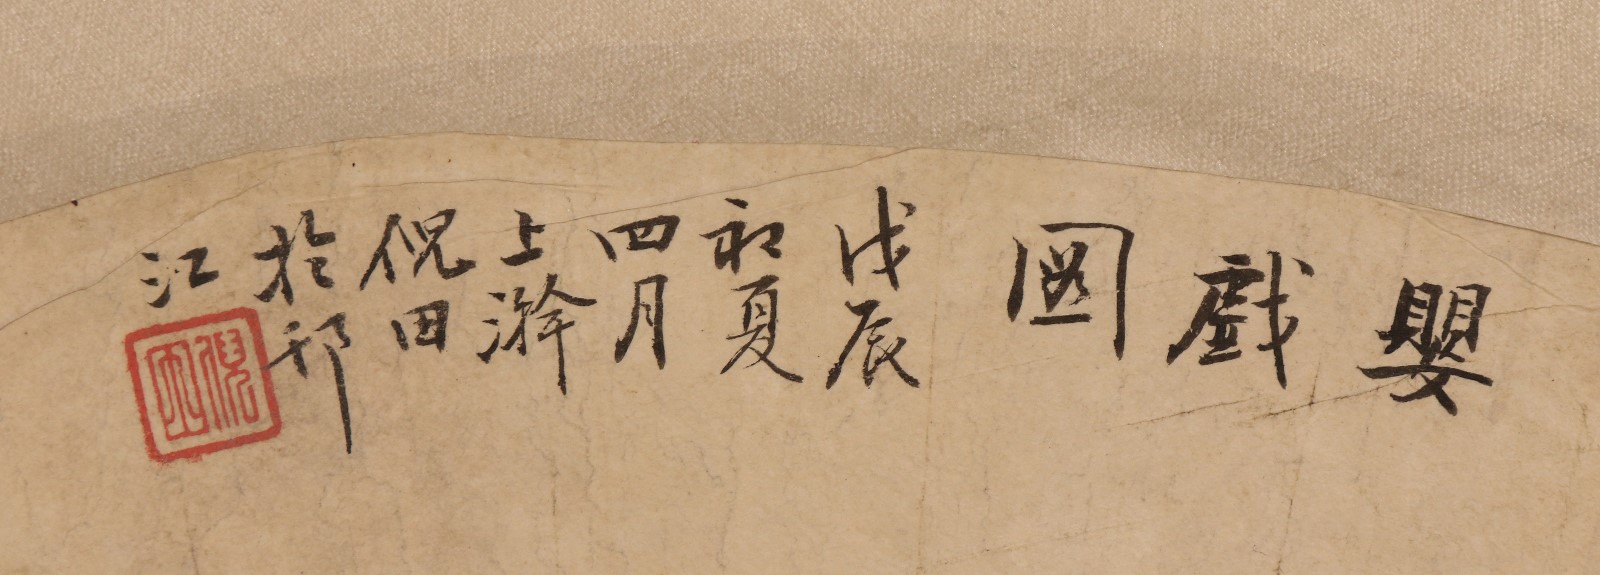 嬰戲圖
戊辰
初夏
四月
上澣
倪田
於邗
江
倪田